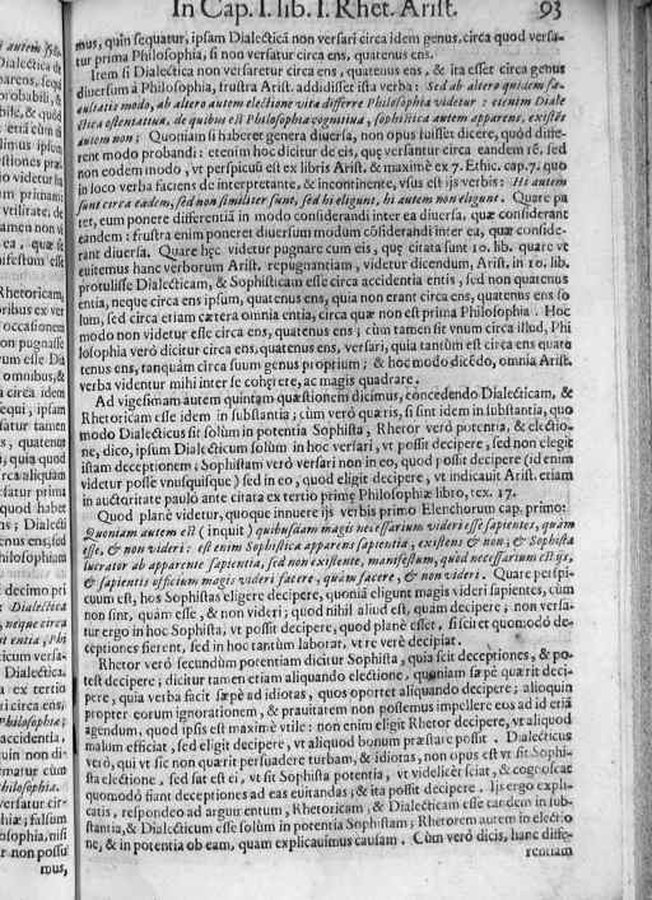 In Cap. I. lib. I. Rhet. Arist. 93
mus, quin sequatur, ipsam Dialecticā non versari circa idem genus, circa quod versa-
tur prima Philosophia, si non versatur circa ens, quatenus ens.
Item si Dialectica non versaretur circa ens, quatenus ens, & ita esset circa genus
diuersum à Philosophia, frustra Arist. addidisset ista verba: Sed ab altero quidem fa-
cultatis modo, ab altero autem electione vitæ differre Philosophia videtur: etenim Diale
ctica ostentatiua, de quibus est Philosophia cognitiua, sophistica autem apparens, existēs
autem non; Quoniam si haberet genera diuersa, non opus fuisset dicere, quòd diffe-
rent modo probandi: etenim hoc dicitur de eis, quę versantur circa eandem rē, sed
non eodem modo, vt perspicuū est ex libris Arist. & maximè ex 7. Ethic. cap. 7. quo
in loco verba faciens de interpretante, & incontinente, vsus est ijs verbis: Hi autem
sunt circa eadem, sed non similiter sunt, sed hi eligunt, hi autem non eligunt. Quare pu
tet, eum ponere differentiā in modo considerandi inter ea diuersa, quæ considerant
eandem: frustra enim poneret diuersum modum cōsiderandi inter ea, quæ conside-
rant diuersa. Quare hęc videtur pugnare cum eis, quę citata sunt 10. lib. quare vt
euitemus hanc verborum Arist. repugnantiam, videtur dicendum, Arist. in 10. lib.
protulisse Dialecticam, & Sophisticam esse circa accidentia entis, sed non quatenus
entia, neque circa ens ipsum, quatenus ens, quia non erant circa ens, quatenus ens so
lum, sed circa etiam cætera omnia entia, circa quæ non est prima Philosophia. Hoc
modo non videtur esse circa ens, quatenus ens; cùm tamen sit vnum circa illud, Phi
losophia verò dicitur circa ens, quatenus ens, versari, quia tantùm est circa ens quate
tenus ens, tanquàm circa suum genus proprium; & hoc modo dicēdo, omnia Arist.
verba videntur mihi inter se cohęrere, ac magis quadrare.
Ad vigesimam autem quintam quæstionem dicimus, concedendo Dialecticam, &
Rhetoricam esse idem in substantia; cùm verò quæris, si sint idem in substantia, quo
modo Dialecticus sit solùm in potentia Sophista, Rhetor verò potentia, & electio-
ne, dico, ipsum Dialecticum solùm in hoc versari, vt possit decipere, sed non elegit
istam deceptionem; Sophistam verò versari non in eo, quod possit decipere (id enim
videtur posse vnusquisque) sed in eo, quod eligit decipere, vt indicauit Arist. etiam
in auctoritate paulò ante citata ex tertio primę Philosophiæ libro, tex. 17.
Quod planè videtur, quoque innuere ijs verbis primo Elenchorum cap. primo:
Quoniam autem est (inquit) quibusdam magis necessarium videri esse sapientes, quàm
esse, & non videri: est enim Sophistica apparens sapientia, existens & non; & Sophista
lucrator ab apparente sapientia, sed non existente, manifestum, quod necessarium est ijs,
& sapientis officium magis videri facere, quàm facere, & non videri. Quare perspi-
cuum est, hos Sophistas eligere decipere, quoniā eligunt magis videri sapientes, cùm
non sint, quàm esse, & non videri; quod nihil aliud est, quàm decipere; non versa-
tur ergo in hoc Sophista, vt possit decipere, quod planè esset, si sciret quomodò de-
ceptiones fierent, sed in hoc tantùm laborat, vt re verè decipiat.
Rhetor verò secundùm potentiam dicitur Sophista, quia scit deceptiones, & po-
test decipere; dicitur tamen etiam aliquando electione, quoniam sæpè quærit deci-
pere, quia verba facit sæpè ad idiotas, quos oportet aliquando decipere; alioquin
propter eorum ignorationem, & prauitatem non possemus impellere eos ad id etiā
agendum, quod ipsis est maximè vtile: non enim eligit Rhetor decipere, vt aliquod
malum efficiat, sed eligit decipere, vt aliquod bonum præstare possit. Dialecticus
verò, qui vt sic non quærit persuadere turbam, & idiotas, non opus est vt sit Sophi-
sta electione, sed sat est ei, vt sit Sophista potentia, vt videlicet sciat, & cognoscat
quomodò fiant deceptiones ad eas euitandas; & ita possit decipere. Ijs ergo expli-
catis, respondeo ad argumentum, Rhetoricam, & Dialecticam esse eandem in sub-
stantia, & Dialecticum esse solùm in potentia Sophistam; Rhetorem autem in electio
ne, & in potentia ob eam, quam explicauimus causam. Cùm verò dicis, hanc diffe-
rentiam